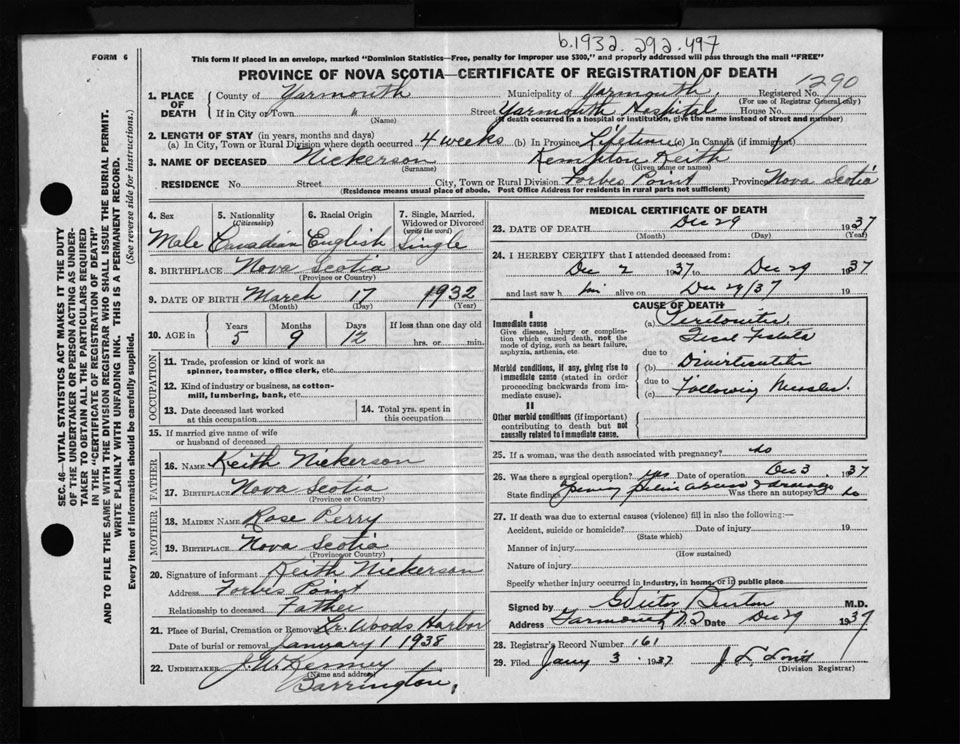 b.1932.292.497
FORM 6
This form if placed in an envelope, marked "Dominion Statistics—Free, penalty for improper use $300," and properly addressed will pass through the mail "FREE"
PROVINCE OF NOVA SCOTIA—CERTIFICATE OF REGISTRATION OF DEATH
1290
1. PLACE OF DEATH County of Yarmouth Municipality of Yarmouth, Registered No.
(For use of Registrar General only)
If in City or Town " (Name) Street Yarmouth Hospital House No.
(If death occurred in a hospital or institution, give the name instead of street and number)
2. LENGTH OF STAY (in years, months and days)
(a) In City, Town or Rural Division where death occurred 4 weeks (b) In Province Lifetime (c) In Canada (if immigrant)
3. NAME OF DECEASED Nickerson (Surname) Kempton Keith (Given name or names)
RESIDENCE No. Street City, Town or Rural Division Forbes Point Province Nova Scotia
(Residence means usual place of abode. Post Office Address for residents in rural parts not sufficient)
SEC. 46—VITAL STATISTICS ACT MAKES IT THE DUTY
OF THE UNDERTAKER OR PERSON ACTING AS UNDER-
TAKER TO OBTAIN ALL THE PARTICULARS REQUIRED
IN THE "CERTIFICATE OF REGISTRATION OF DEATH"
AND TO FILE THE SAME WITH THE DIVISION REGISTRAR WHO SHALL ISSUE THE BURIAL PERMIT.
WRITE PLAINLY WITH UNFADING INK. THIS IS A PERMANENT RECORD.
Every item of information should be carefully supplied. (See reverse side for instructions.)
4. Sex Male
5. Nationality (Citizenship) Canadian
6. Racial Origin English
7. Single, Married, Widowed or Divorced (write the word) Single
8. BIRTHPLACE Nova Scotia
(Province or Country)
9. DATE OF BIRTH March 17 1932
(Month) (Day) (Year)
10. AGE in Years 5 Months 9 Days 12 If less than one day old hrs. or min.
OCCUPATION
11. Trade, profession or kind of work as
spinner, teamster, office clerk, etc.
12. Kind of industry or business, as cotton-
mill, lumbering, bank, etc.
13. Date deceased last worked at this occupation
14. Total yrs. spent in this occupation
15. If married give name of wife
or husband of deceased
FATHER
16. NAME Keith Nickerson
17. BIRTHPLACE Nova Scotia
(Province or Country)
MOTHER
18. MAIDEN NAME Rose Perry
19. BIRTHPLACE Nova Scotia
(Province or Country)
20. Signature of informant Keith Nickerson
Address Forbes Point
Relationship to deceased Father
21. Place of Burial, Cremation or Removal Lr. Woods Harbor
Date of burial or removal January 1 1938
22. UNDERTAKER J. W. Kenney
(Name and address)
Barrington,
MEDICAL CERTIFICATE OF DEATH
23. DATE OF DEATH Dec 29 1937
(Month) (Day) (Year)
24. I HEREBY CERTIFY that I attended deceased from:
Dec 2 1937 to Dec 29 1937
and last saw h im alive on Dec 29/37 19
CAUSE OF DEATH
I
Immediate cause
Give disease, injury or complication which caused death, not the mode of dying, such as heart failure, asphyxia, asthenia, etc.
(a) Peritonitis
Fecal Fistula
due to
Morbid conditions, if any, giving rise to immediate cause (stated in order proceeding backwards from immediate cause).
(b) Diverticulitis
due to
(c) Following Measles.
II
Other morbid conditions (if important) contributing to death but not causally related to immediate cause.
25. If a woman, was the death associated with pregnancy? no
26. Was there a surgical operation? yes Date of operation Dec 3 1937
State findings abscess & drainage Was there an autopsy? no
27. If death was due to external causes (violence) fill in also the following:—
Accident, suicide or homicide? Date of injury 19
(State which)
Manner of injury
(How sustained)
Nature of injury
Specify whether injury occurred in industry, in home, or in public place
Signed by M.D.
Address Yarmouth N.S. Date Dec 29 1937
28. Registrar's Record Number 161
29. Filed Jany 3 1937
(Division Registrar)